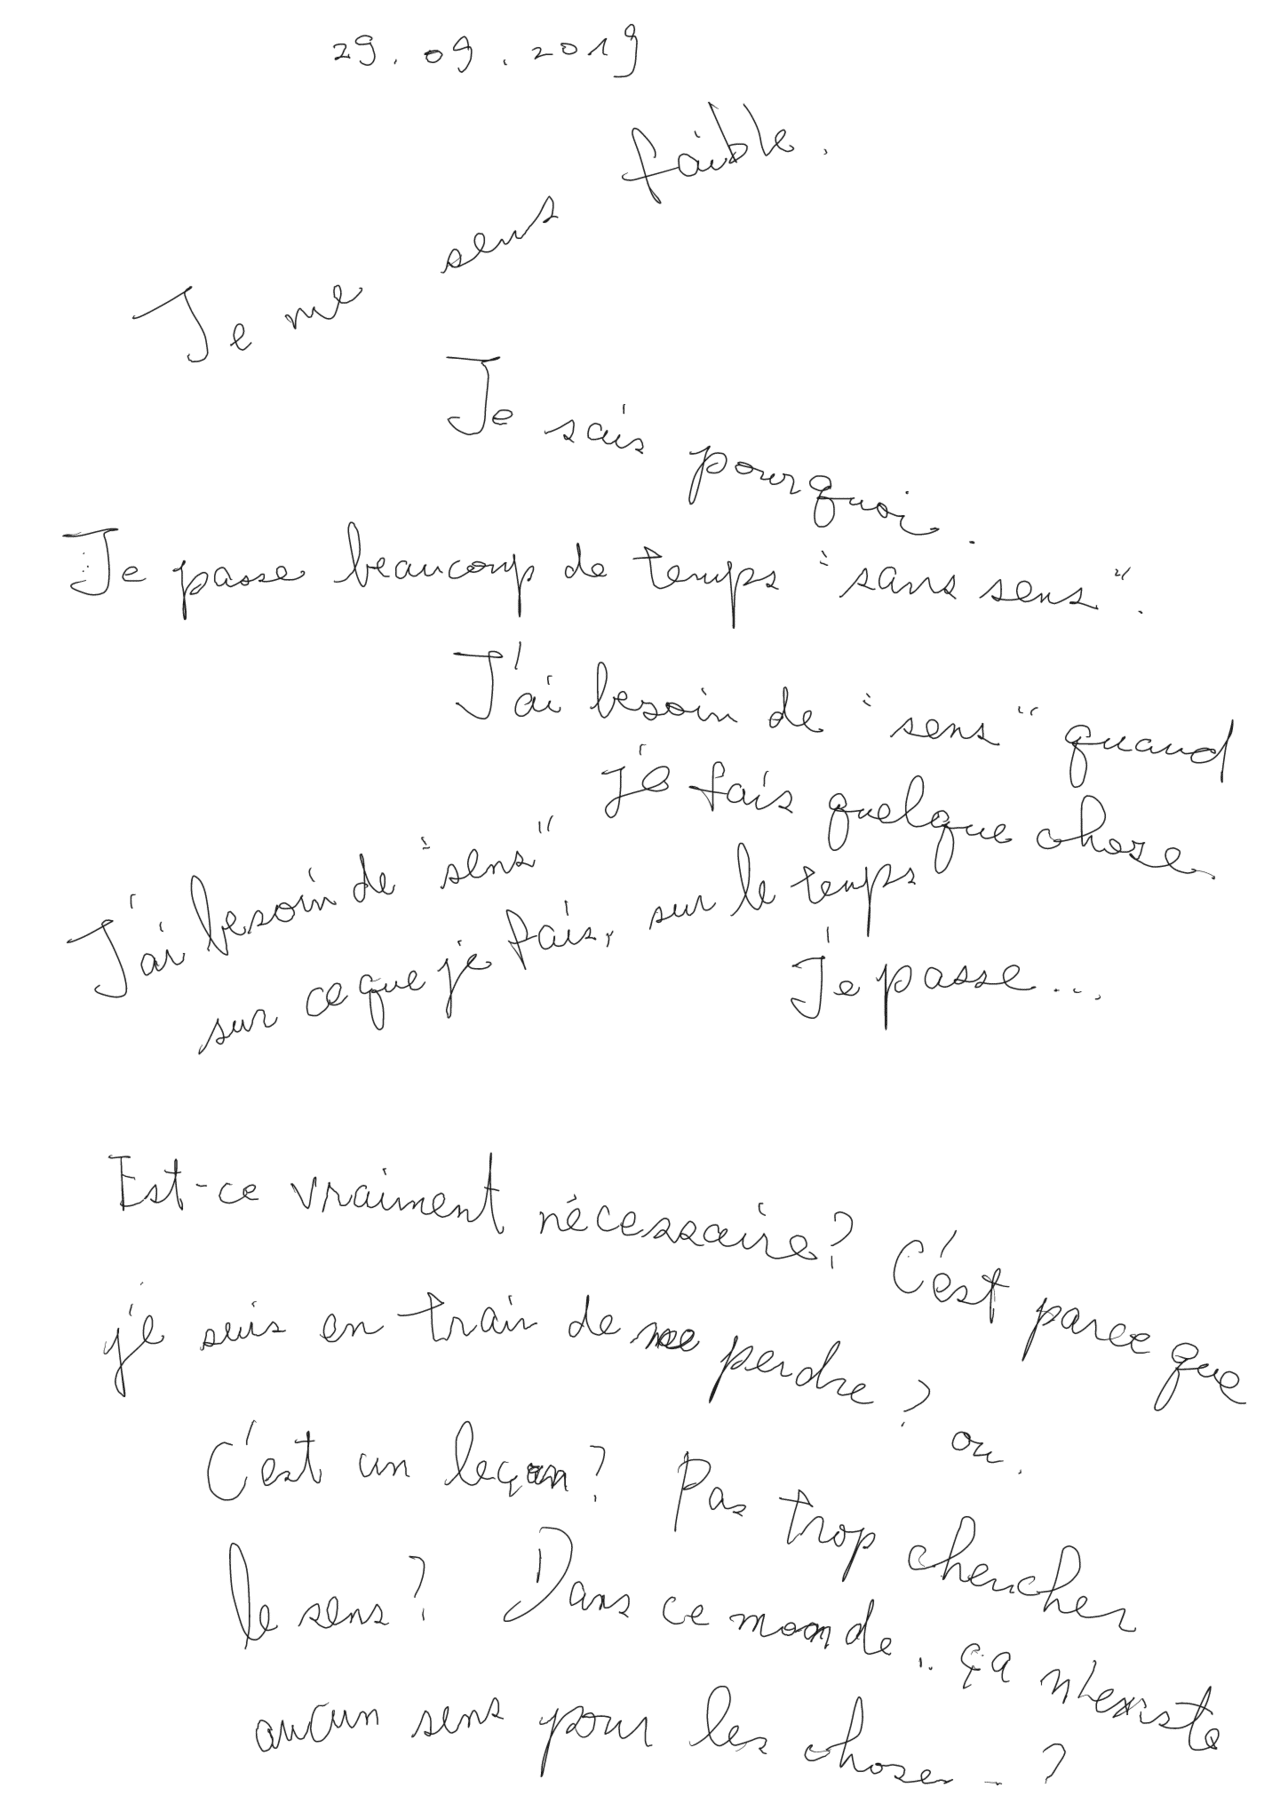 29.09.2019
Je me sens faible.
Je sais pourquoi.
Je passe beaucoup de temps "sans sens".
J'ai besoin de "sens" quand
je fais quelque chose.
J'ai besoin de "sens"
sur ce que je fais, sur le temps
Je passe...
Est-ce vraiment nécessaire? C'est parce que
je suis en train de me perdre? ou.
C'est un leçon? Pas trop chercher
le sens? Dans ce monde.. ça n'existe
aucun sens pour les choses..?